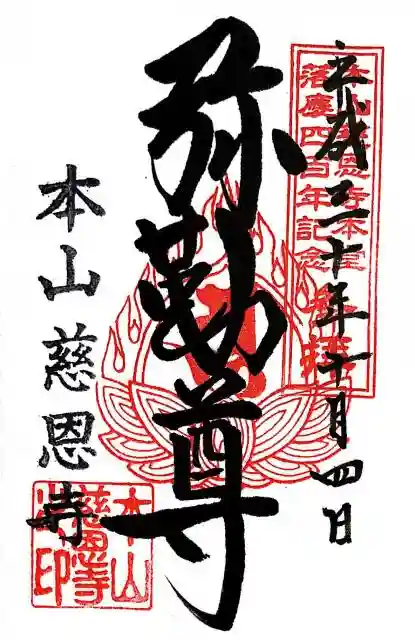 平成三十年十月四日
本山慈恩寺本堂
落慶四百年記念
弥勒尊
本山慈恩寺
本山
慈恩寺
印